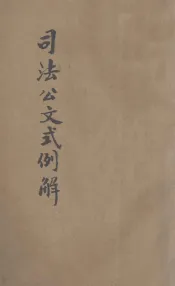 司法公文式例解